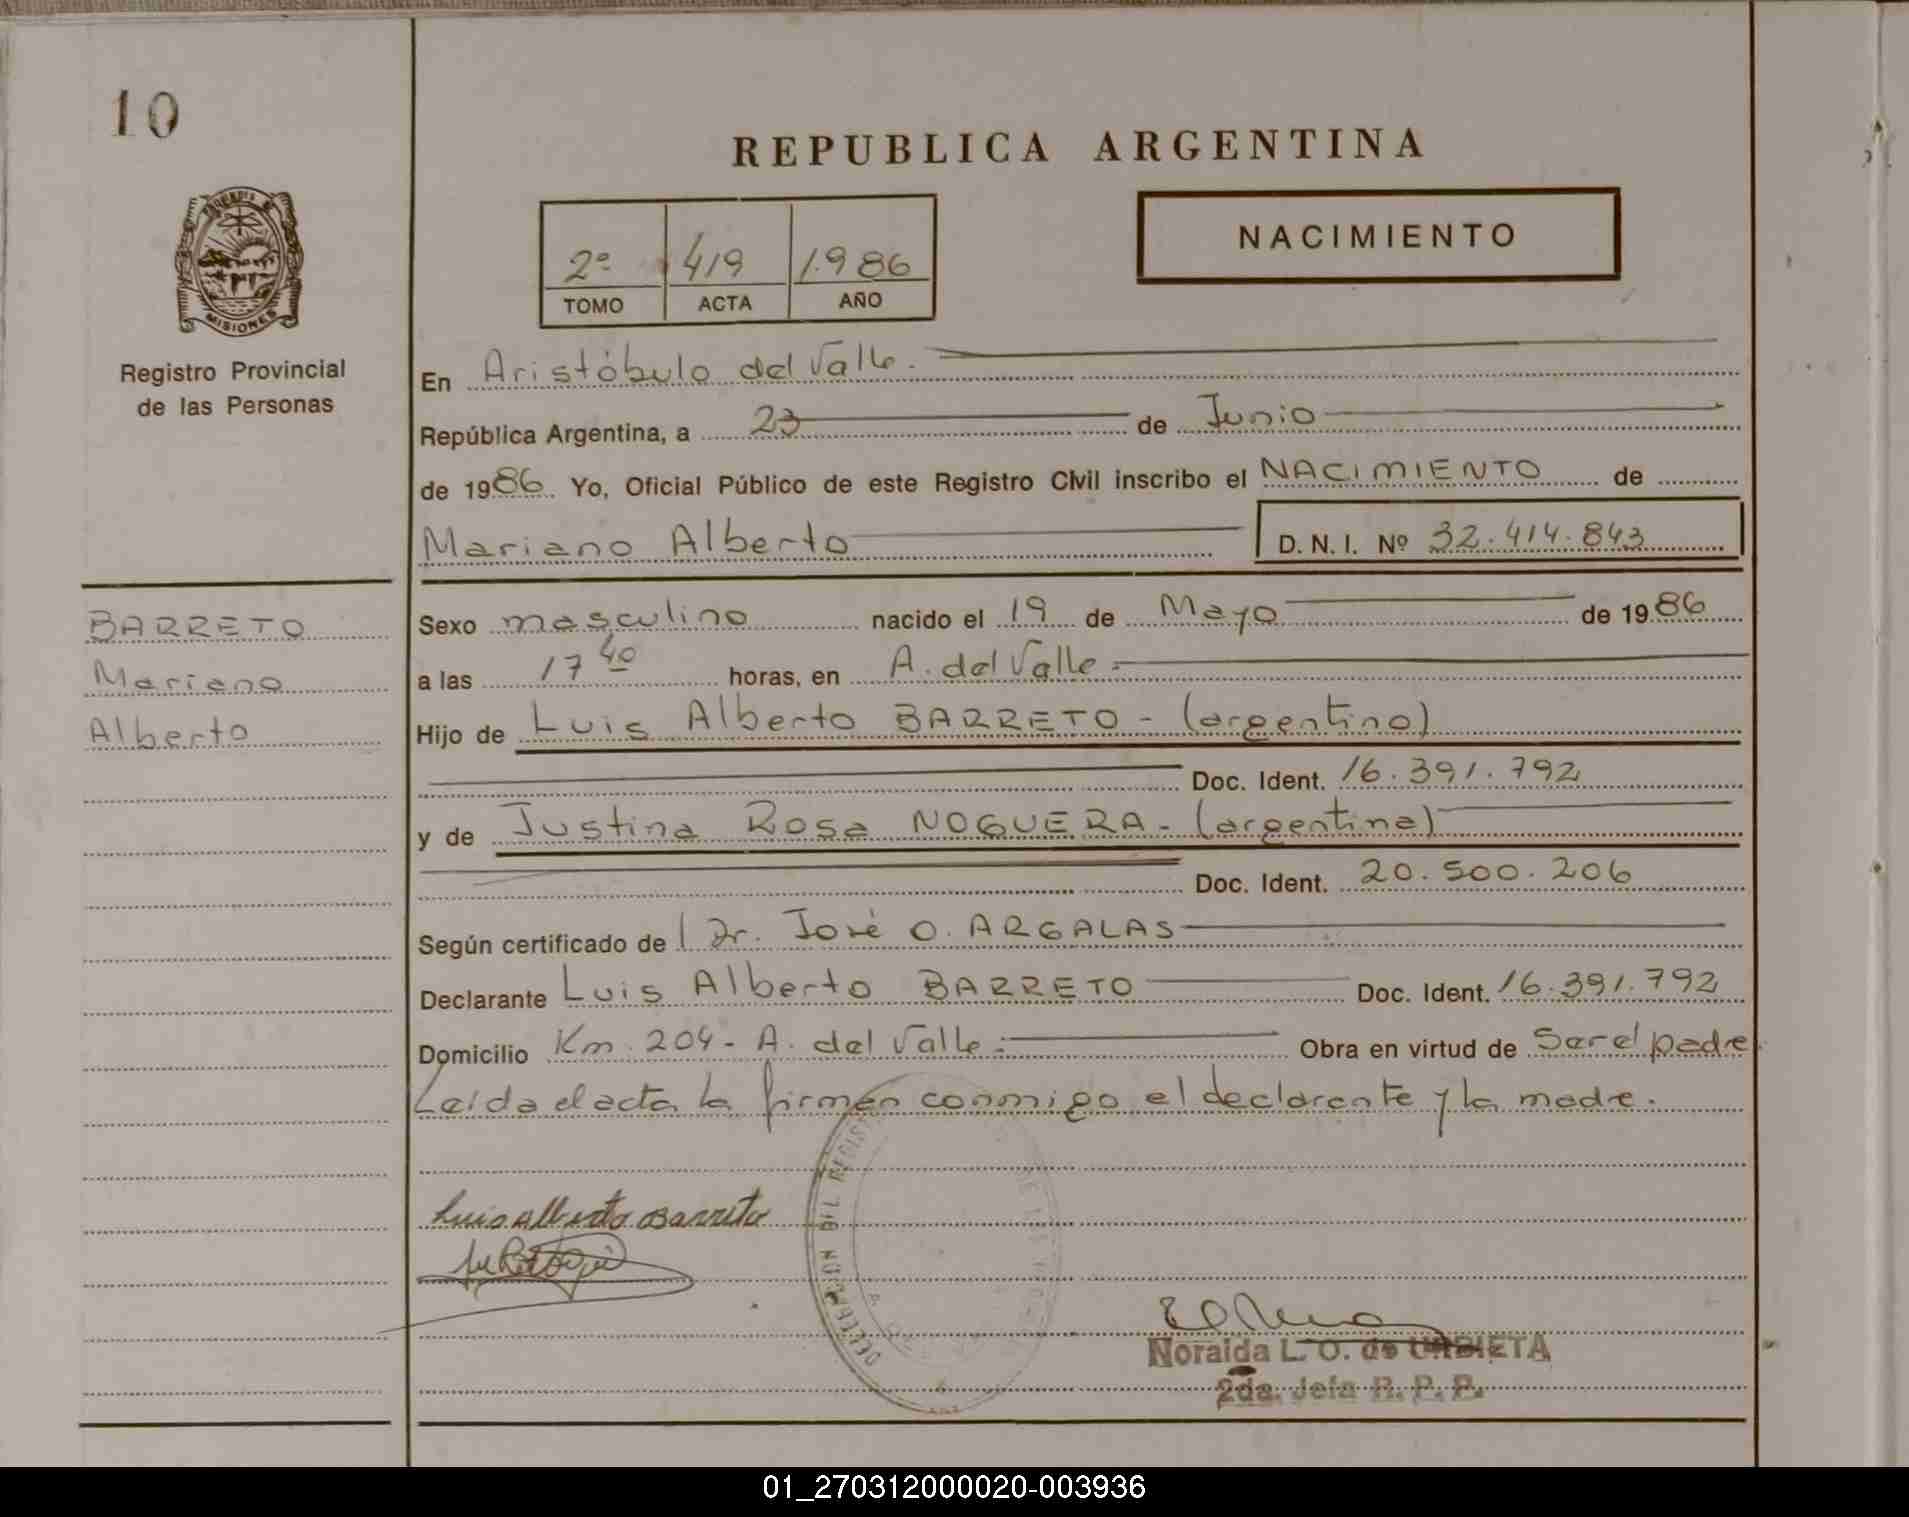 10
REPUBLICA ARGENTINA
MISIONES
Registro Provincial
de las Personas
2º 419 1.986
TOMO ACTA AÑO
NACIMIENTO
En Aristóbulo del Valle.
República Argentina, a 23 de Junio
de 1986 Yo, Oficial Público de este Registro Civil inscribo el NACIMIENTO de
Mariano Alberto D. N. I. Nº 32.414.843
BARRETO
Mariano
Alberto
Sexo masculino nacido el 19 de Mayo de 1986
a las 17 40 horas, en A. del Valle.
Hijo de Luis Alberto BARRETO - (argentino)
Doc. Ident. 16.391.792
y de Justina Rosa NOGUERA - (argentina)
Doc. Ident. 20.500.206
Según certificado de Dr. José O. ARGALAS
Declarante Luis Alberto BARRETO Doc. Ident. 16.391.792
Domicilio Km. 204 - A. del Valle. Obra en virtud de Ser el padre.
Leída el acta la firman conmigo el declarante y la madre.
Luis Alberto Barreto
Noraida L. O. de URBIETA
2da. Jefa R. P. P.
01_270312000020-003936